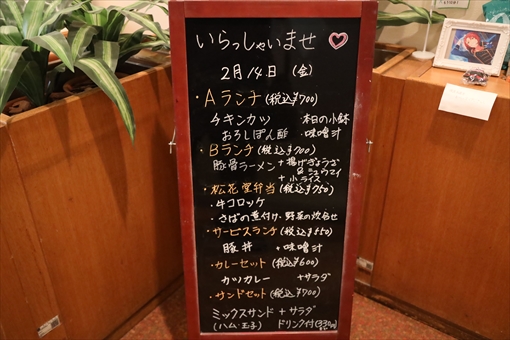 いらっしゃいませ
2月14日（金）
・Aランチ（税込¥700）
チキンカツ ・本日の小鉢
おろしぽん酢 ・味噌汁
・Bランチ（税込¥700）
豚骨ラーメン + 揚げぎょうざ
シュウマイ
+ 小ライス
・松花堂弁当（税込¥750）
・牛コロッケ
・さばの煮付け・野菜の炊合せ
・サービスランチ（税込¥550）
豚丼 +味噌汁
・カレーセット（税込¥600）
カツカレー +サラダ
・サンドセット（税込¥700）
ミックスサンド + サラダ
（ハム・玉子） ドリンク付